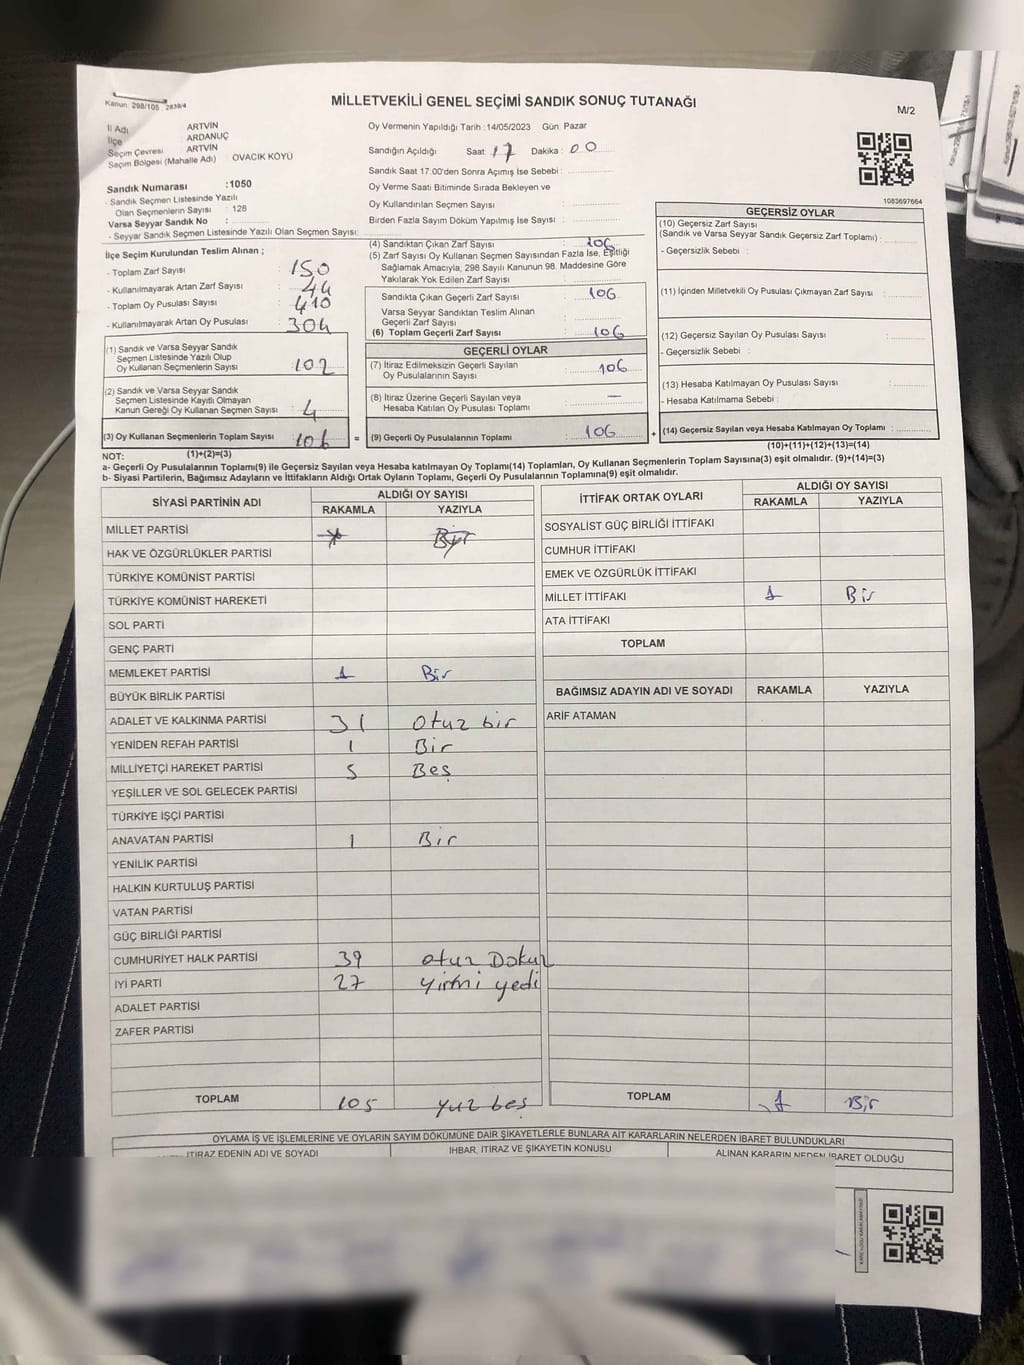 Kanun: 298/105 2839/4
MİLLETVEKİLİ GENEL SEÇİMİ SANDIK SONUÇ TUTANAĞI
M/2
İl Adı ARTVİN
İlçe ARDANUÇ
Seçim Çevresi ARTVİN
Seçim Bölgesi (Mahalle Adı) OVACIK KÖYÜ
Sandık Numarası :1050
- Sandık Seçmen Listesinde Yazılı
Olan Seçmenlerin Sayısı : 128
Varsa Seyyar Sandık No :
- Seyyar Sandık Seçmen Listesinde Yazılı Olan Seçmen Sayısı:
Oy Vermenin Yapıldığı Tarih :14/05/2023 Gün: Pazar
Sandığın Açıldığı Saat: 17 Dakika : 00
Sandık Saat 17:00'den Sonra Açımış İse Sebebi :
Oy Verme Saati Bitiminde Sırada Bekleyen ve
Oy Kullandırılan Seçmen Sayısı :
Birden Fazla Sayım Döküm Yapılmış İse Sayısı :
1083697664
İlçe Seçim Kurulundan Teslim Alınan ;
- Toplam Zarf Sayısı : 150
- Kullanılmayarak Artan Zarf Sayısı : 44
- Toplam Oy Pusulası Sayısı : 410
- Kullanılmayarak Artan Oy Pusulası : 304
(1) Sandık ve Varsa Seyyar Sandık
Seçmen Listesinde Yazılı Olup
Oy Kullanan Seçmenlerin Sayısı : 102
(2) Sandık ve Varsa Seyyar Sandık
Seçmen Listesinde Kayıtlı Olmayan
Kanun Gereği Oy Kullanan Seçmen Sayısı : 4
(3) Oy Kullanan Seçmenlerin Toplam Sayısı : 106
(1)+(2)=(3)
(4) Sandıktan Çıkan Zarf Sayısı : 106
(5) Zarf Sayısı Oy Kullanan Seçmen Sayısından Fazla İse, Eşitliği
Sağlamak Amacıyla, 298 Sayılı Kanunun 98. Maddesine Göre
Yakılarak Yok Edilen Zarf Sayısı :
Sandıkta Çıkan Geçerli Zarf Sayısı : 106
Varsa Seyyar Sandıktan Teslim Alınan
Geçerli Zarf Sayısı :
(6) Toplam Geçerli Zarf Sayısı : 106
GEÇERLİ OYLAR
(7) İtiraz Edilmeksizin Geçerli Sayılan
Oy Pusulalarının Sayısı : 106
(8) İtiraz Üzerine Geçerli Sayılan veya
Hesaba Katılan Oy Pusulası Toplamı : —
= (9) Geçerli Oy Pusulalarının Toplamı : 106
GEÇERSİZ OYLAR
(10) Geçersiz Zarf Sayısı
(Sandık ve Varsa Seyyar Sandık Geçersiz Zarf Toplamı) :
- Geçersizlik Sebebi :
(11) İçinden Milletvekili Oy Pusulası Çıkmayan Zarf Sayısı :
(12) Geçersiz Sayılan Oy Pusulası Sayısı :
- Geçersizlik Sebebi :
(13) Hesaba Katılmayan Oy Pusulası Sayısı :
- Hesaba Katılmama Sebebi :
+ (14) Geçersiz Sayılan veya Hesaba Katılmayan Oy Toplamı :
(10)+(11)+(12)+(13)=(14)
NOT:
a- Geçerli Oy Pusulalarının Toplamı(9) ile Geçersiz Sayılan veya Hesaba katılmayan Oy Toplamı(14) Toplamları, Oy Kullanan Seçmenlerin Toplam Sayısına(3) eşit olmalıdır. (9)+(14)=(3)
b- Siyasi Partilerin, Bağımsız Adayların ve İttifakların Aldığı Ortak Oyların Toplamı, Geçerli Oy Pusulalarının Toplamına(9) eşit olmalıdır.
SİYASİ PARTİNİN ADI ALDIĞI OY SAYISI
RAKAMLA YAZIYLA
MİLLET PARTİSİ
HAK VE ÖZGÜRLÜKLER PARTİSİ
TÜRKİYE KOMÜNİST PARTİSİ
TÜRKİYE KOMÜNİST HAREKETİ
SOL PARTİ
GENÇ PARTİ
MEMLEKET PARTİSİ 1 Bir
BÜYÜK BİRLİK PARTİSİ
ADALET VE KALKINMA PARTİSİ 31 otuz bir
YENİDEN REFAH PARTİSİ 1 Bir
MİLLİYETÇİ HAREKET PARTİSİ 5 Beş
YEŞİLLER VE SOL GELECEK PARTİSİ
TÜRKİYE İŞÇİ PARTİSİ
ANAVATAN PARTİSİ 1 Bir
YENİLİK PARTİSİ
HALKIN KURTULUŞ PARTİSİ
VATAN PARTİSİ
GÜÇ BİRLİĞİ PARTİSİ
CUMHURİYET HALK PARTİSİ 39 otuz Dokuz
İYİ PARTİ 27 yirmi yedi
ADALET PARTİSİ
ZAFER PARTİSİ
TOPLAM 105 yuz beş
İTTİFAK ORTAK OYLARI ALDIĞI OY SAYISI
RAKAMLA YAZIYLA
SOSYALİST GÜÇ BİRLİĞİ İTTİFAKI
CUMHUR İTTİFAKI
EMEK VE ÖZGÜRLÜK İTTİFAKI
MİLLET İTTİFAKI 1 Bir
ATA İTTİFAKI
TOPLAM
BAĞIMSIZ ADAYIN ADI VE SOYADI RAKAMLA YAZIYLA
ARİF ATAMAN
TOPLAM 1 Bir
OYLAMA İŞ VE İŞLEMLERİNE VE OYLARIN SAYIM DÖKÜMÜNE DAİR ŞİKAYETLERLE BUNLARA AİT KARARLARIN NELERDEN İBARET BULUNDUKLARI
İTİRAZ EDENİN ADI VE SOYADI İHBAR, İTİRAZ VE ŞİKAYETİN KONUSU ALINAN KARARIN NEDEN İBARET OLDUĞU